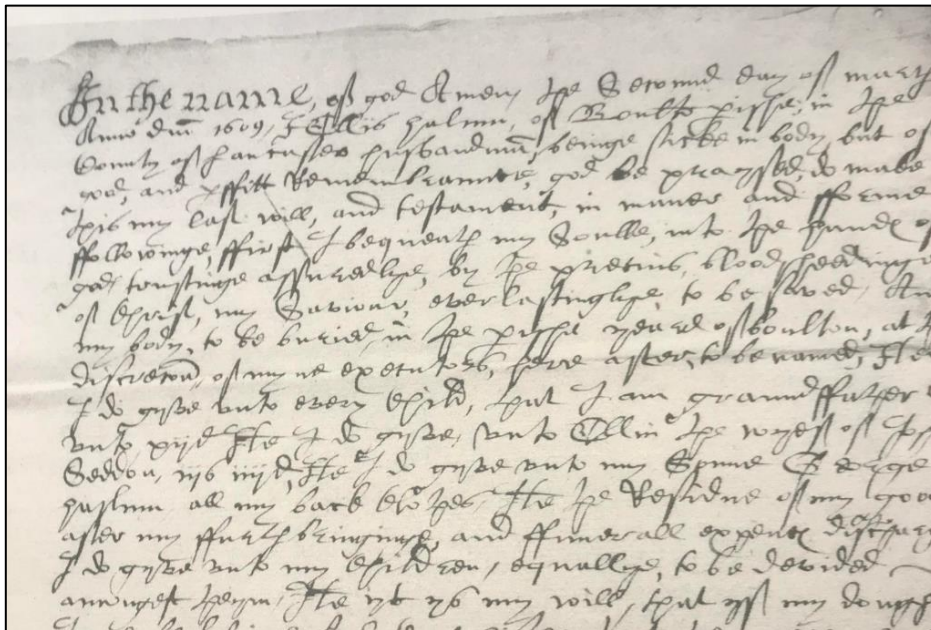 In the name, of god Amen the Second day of march
Anno dni 1609, I Ellis halmn, of Boulto pishe, in the
County of Lancaster husbandmã, beinge sicke in body, but of
good, and pffitt Remembrannce, god be praysed, do make
this my last will, and testament, in maner and fforme
ffollowinge, ffirst I bequeath my Soulle, into the handℯ of
god, trustinge assuredlye, by the pretius, bloodsheedinge
of Christ, my Saviour, everlastinglye, to be saved, An
my body, to be buried, in the pishe yeard of boulton, at
discretoñ, of myne executors, here after, to be named, Ite
I do gyve unto every Child, that I am grandffather
unto xijd Ite I do gyve, unto Ellin the wyef of
Seddon, iijs iiijd, Ite I do gyve unto my Sonne George
haslmn all my back Clothes, Ite the Residue of my goo
after my ffurth bringinge, and ffunerall expencℯ discharg
I do gyve unto my Children, equallye, to be devided
amongest theym, Ite yt ys my will, that yff my dough